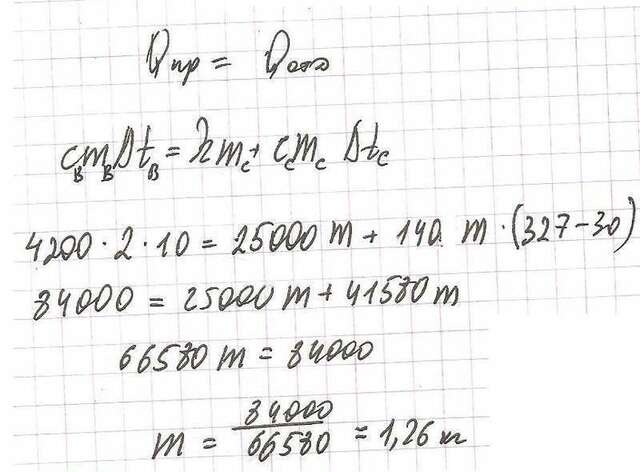 Qпр = Qотд
cвmвΔtв = λmс + cсmс Δtс
4200 · 2 · 10 = 25000 m + 140 m · (327 - 30)
84000 = 25000 m + 41580 m
66580 m = 84000
m = 84000 / 66580 = 1,26 кг